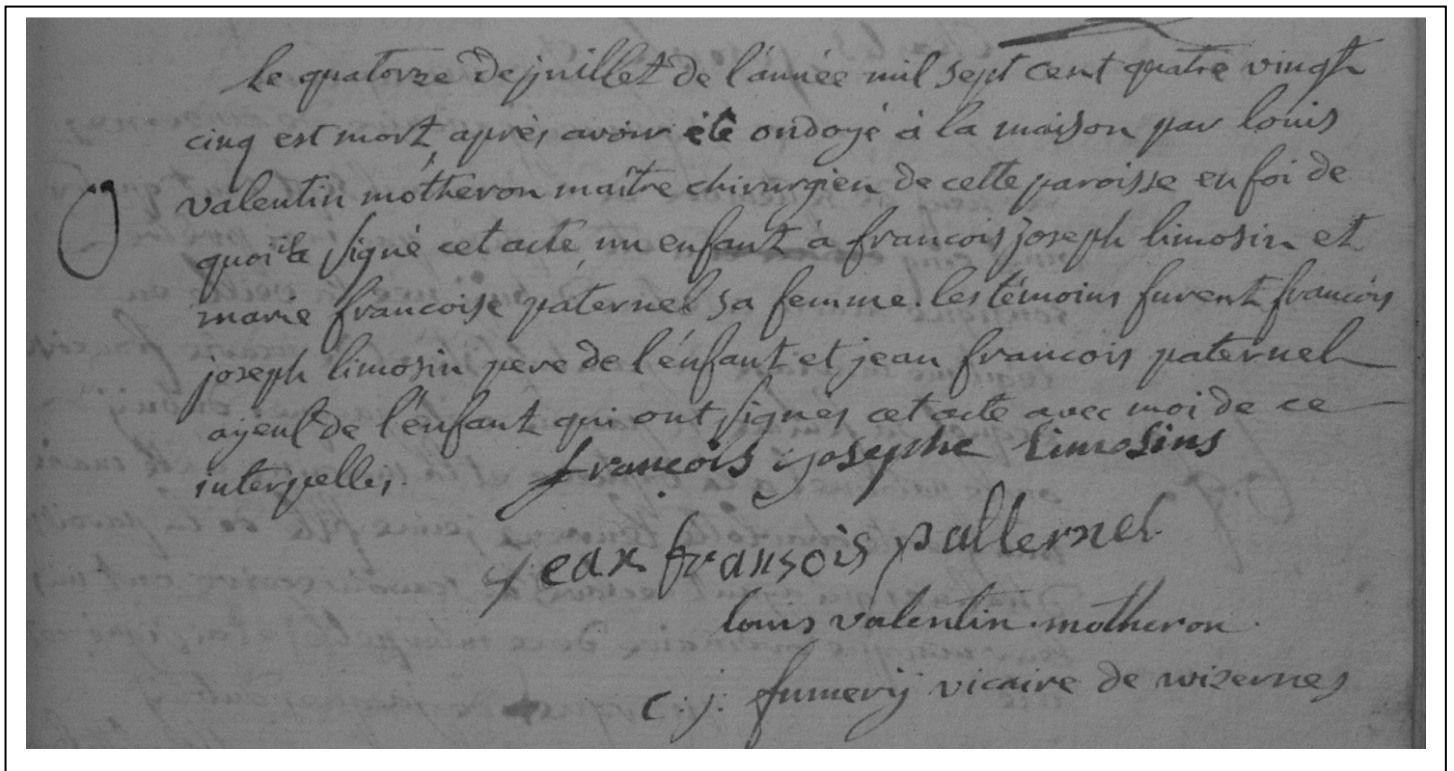 le quatorze de juillet de l'année mil sept cent quatre vingt
cinq est mort, après avoir été ondoyé à la maison par louis
valentin motheron maître chirurgien de cette paroisse en foi de
quoi il a signé cet acte, un enfant à francois joseph limosin et
marie francoise paternel sa femme. les témoins furent francois
joseph limosin pere de l'énfant et jean francois paternel
ayeul de l'énfant qui ont signés cet acte avec moi de ce
interpellés.
francois josephe limosins
jean fransois pallernel
louis valentin motheron
c. j. fumerij vicaire de wizernes